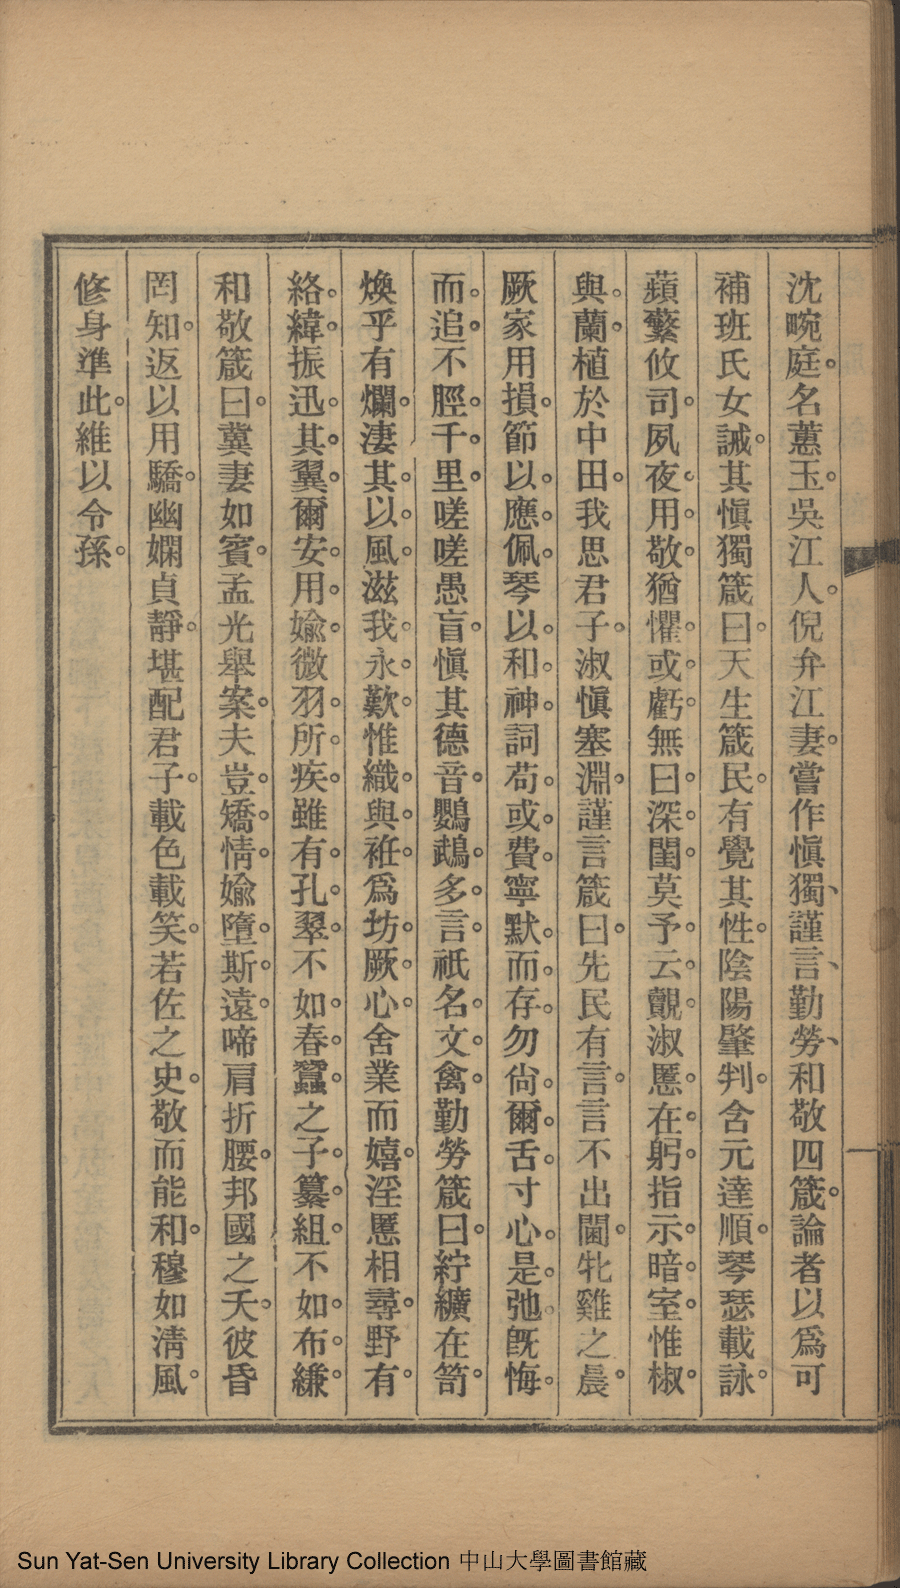 沈畹庭。名蕙玉。吳江人。倪弁江妻。嘗作愼獨、謹言、勤勞、和敬四箴。論者以爲可
補班氏女誡。其愼獨箴曰。天生箴民。有覺其性。陰陽肇判。含元達順。琴瑟載詠。
蘋蘩攸司。夙夜。用敬。猶懼。或虧。無曰。深閨。莫予。云覿。淑慝。在躬。指示。暗室。惟椒。
與。蘭。植於中田。我思君子。淑愼塞淵。謹言箴曰。先民有言。言不出閫。牝雞之晨。
厥家用損。節以。應。佩琴以。和。神。詞苟。或。費。寧默。而。存。勿尙。爾。舌。寸心。是。弛。旣悔。
而。追。不脛。千。里。嗟嗟愚盲。愼其德音。鸚鵡。多。言。祇名。文。禽。勤勞箴曰。紵纊在笥。
煥乎有爛。淒其。以。風。滋我。永。歎。惟織。與。袵。爲坊。厥。心。舍業而嬉。淫慝相尋。野有。
絡。緯。振迅。其。翼。爾安。用。媮。微羽。所。疾。雖有。孔。翠。不如。春。蠶。之子。纂。組。不如。布。縑。
和敬箴曰。冀妻如賓。孟光舉案。夫豈。矯。情。媮墮。斯。遠。啼肩折腰。邦國之夭。彼昏
罔知。返以用驕。幽嫻貞靜。堪配君子。載色載笑。若佐之史。敬而能和。穆如淸風。
修身準此。維以令孫。
Sun Yat-Sen University Library Collection 中山大學圖書館藏